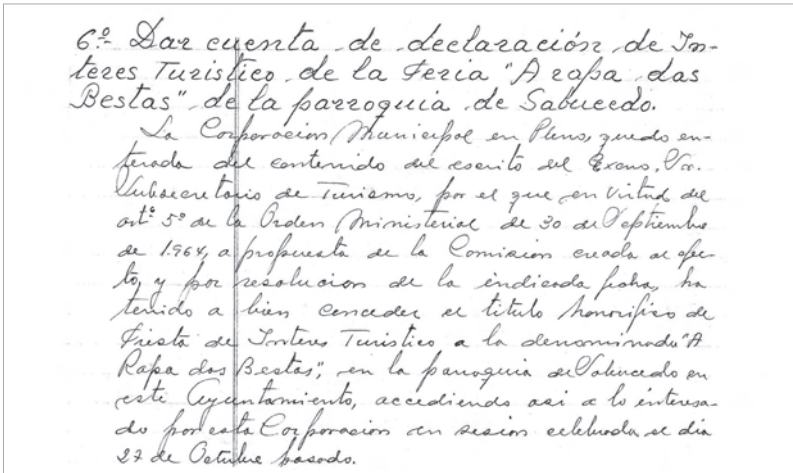 6º.- Dar cuenta de declaración de In-
teres Turistico de la Feria "A rapa das
Bestas" de la parroquia de Sabucedo.
La Corporacion Municipal en Pleno, quedo en-
terada del contenido del escrito del Excmo. Sr.
Subsecretario de Turismo, por el que en virtud del
artº 5º de la Orden Ministerial de 30 de Septiembre
de 1.964, a propuesta de la Comision creada al efec-
to, y por resolucion de la indicada fecha, ha
tenido a bien conceder el titulo honorifico de
Fiesta de Interes Turistico a la denominada "A
Rapa das Bestas", en la parroquia de Sabucedo en
este Ayuntamiento, accediendo asi a lo interesa-
do por esta Corporacion en sesion celebrada el dia
27 de Octubre pasado.